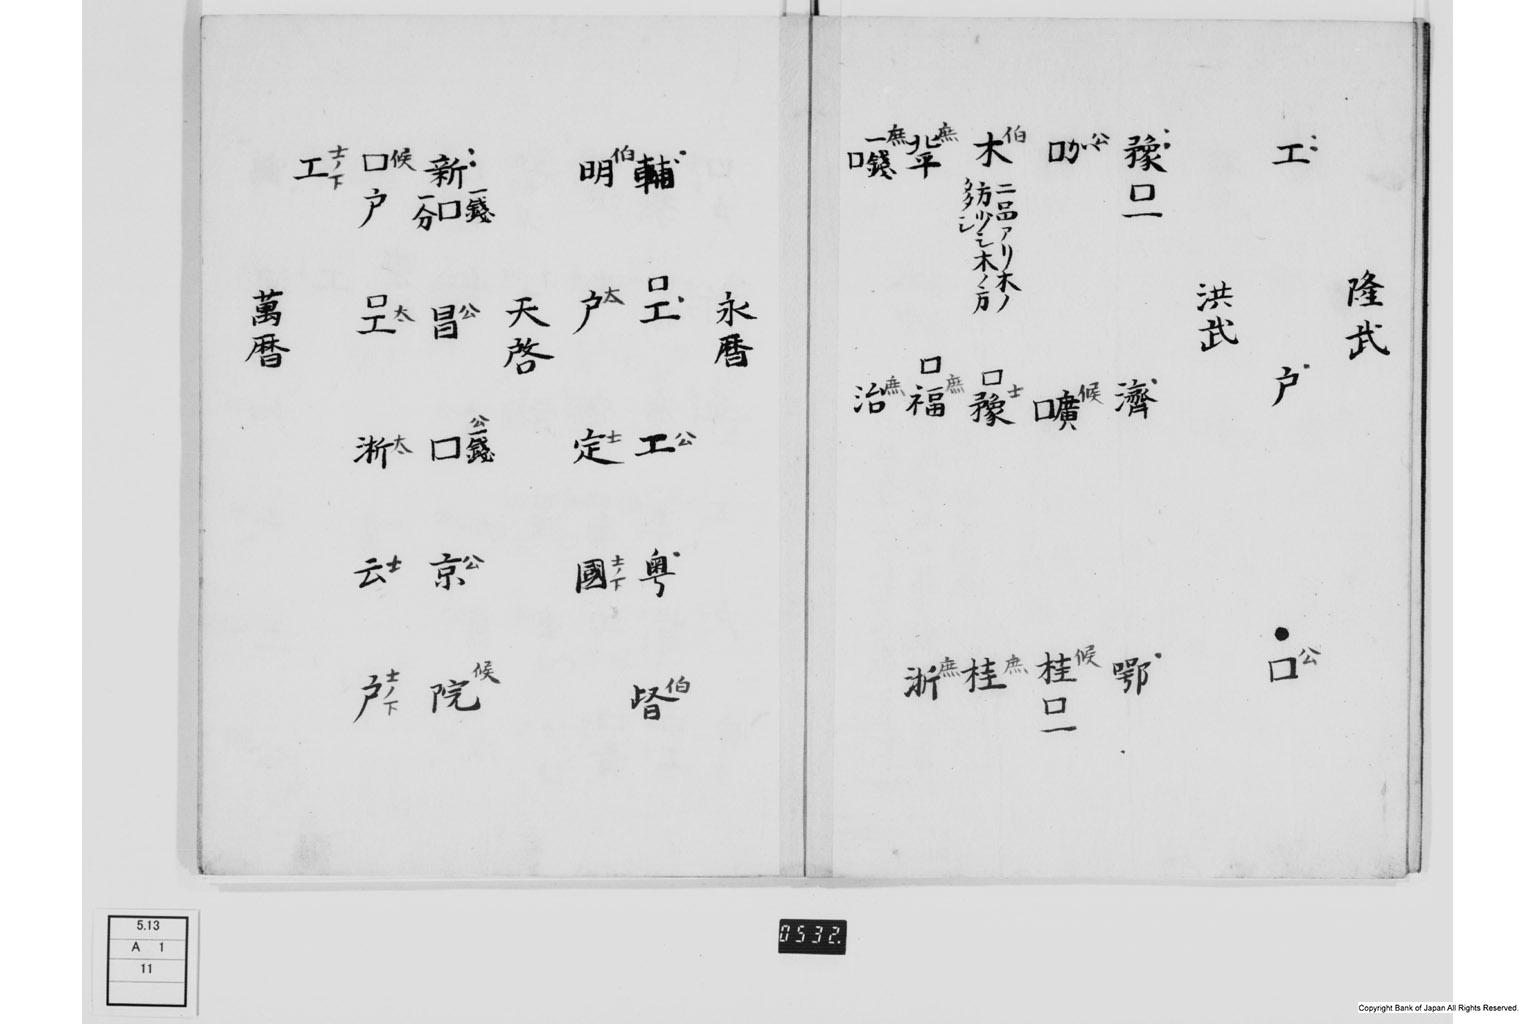 隆武
工 戸 口公
洪武
豫口一 濟 鄂
口 廣口候 桂口一候
木伯 豫口士 桂庶
二品アリ木ノ
方少シ木ノ方
多シ
北平庶 福口庶 浙庶
一錢口庶 治庶
永暦
輔 工口 工公 粤 督伯
明伯 戸太 定士 國士ノ下
天啓
新一錢口一分 昌公 一錢口公 京公 院候
口戸候 工口太 淅太 云士 戸士ノ下
工士ノ下
萬暦
5.13
A 1
11
0532.
Copyright Bank of Japan All Rights Reserved.